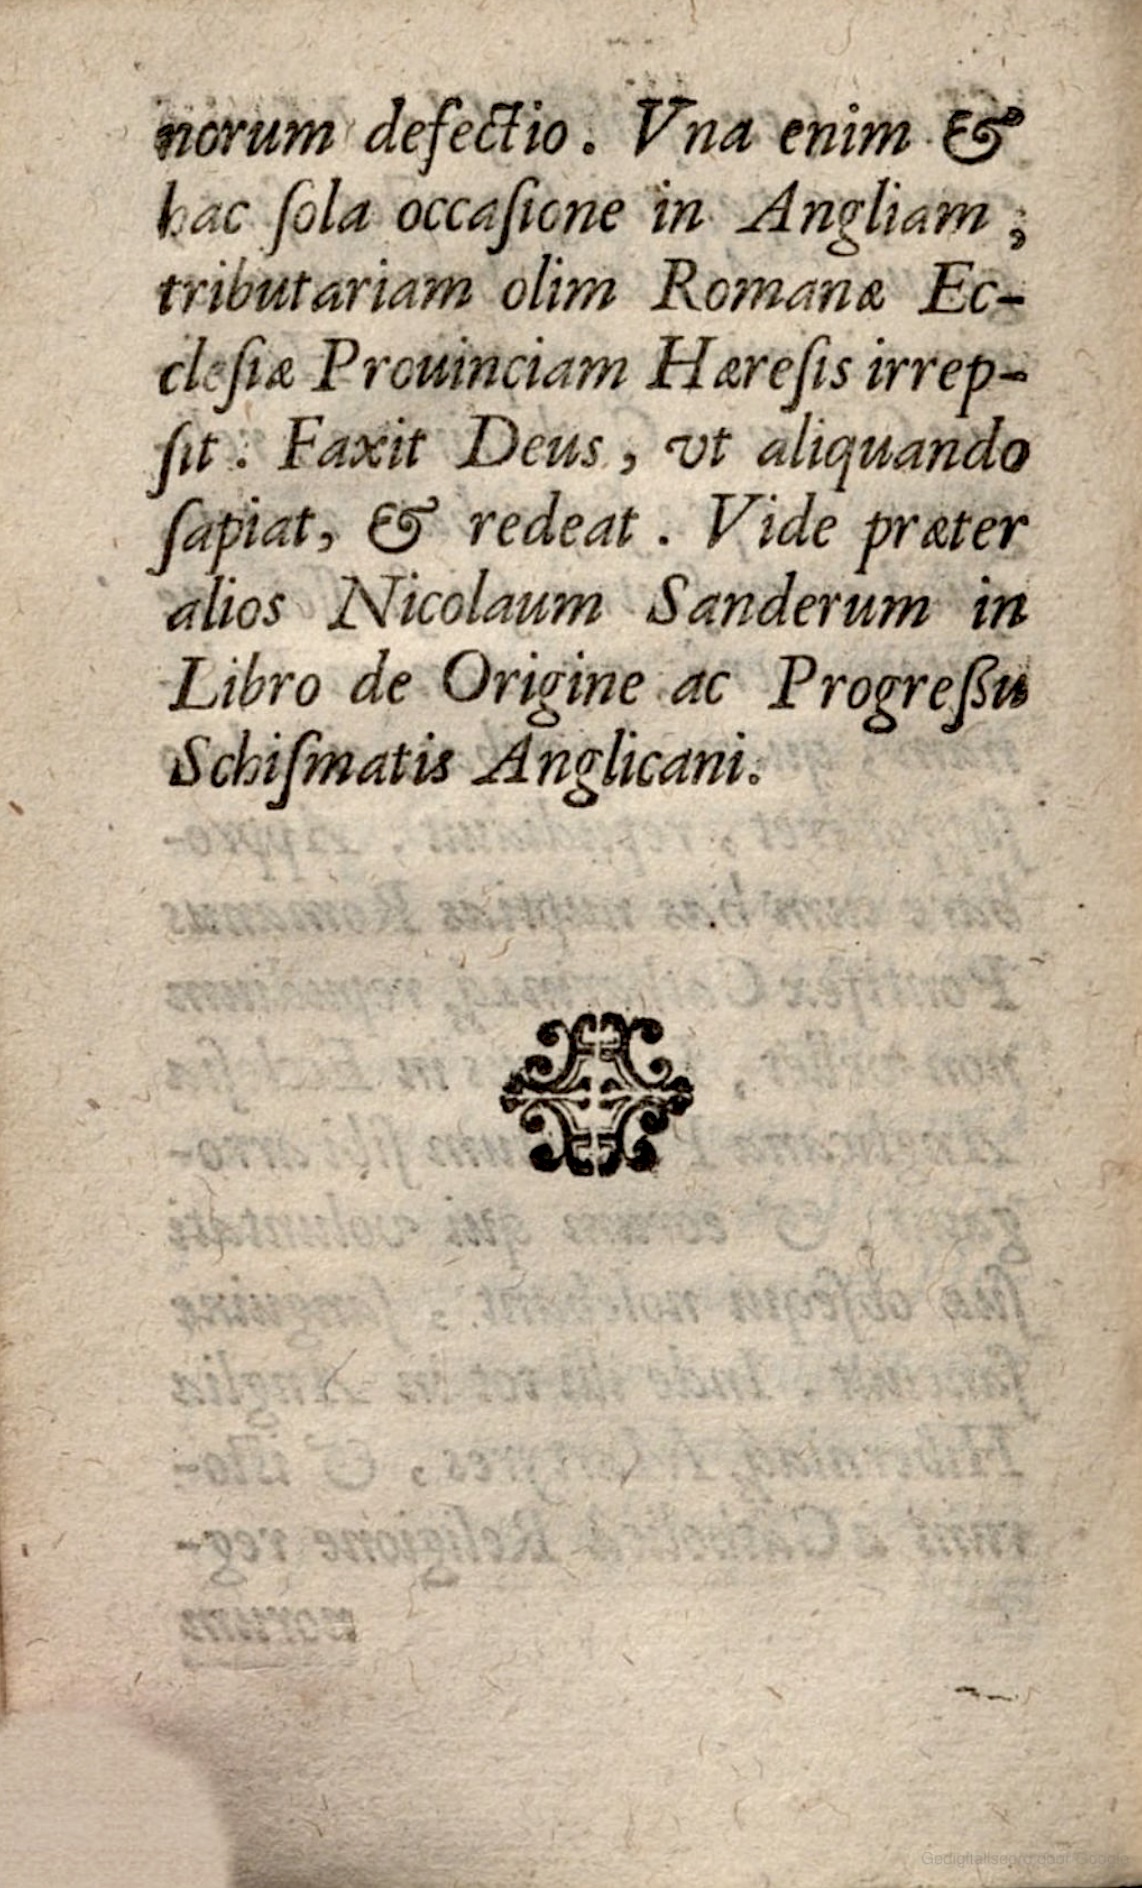 norum defectio. Vna enim &
hac ſola occaſione in Angliam,
tributariam olim Romanæ Ec-
cleſiæ Prouinciam Hæreſis irrep-
ſit. Faxit Deus, vt aliquando
ſapiat, & redeat. Vide præter
alios Nicolaum Sanderum in
Libro de Origine ac Progreßu
Schiſmatis Anglicani.
Gedigitaliseerd door Google